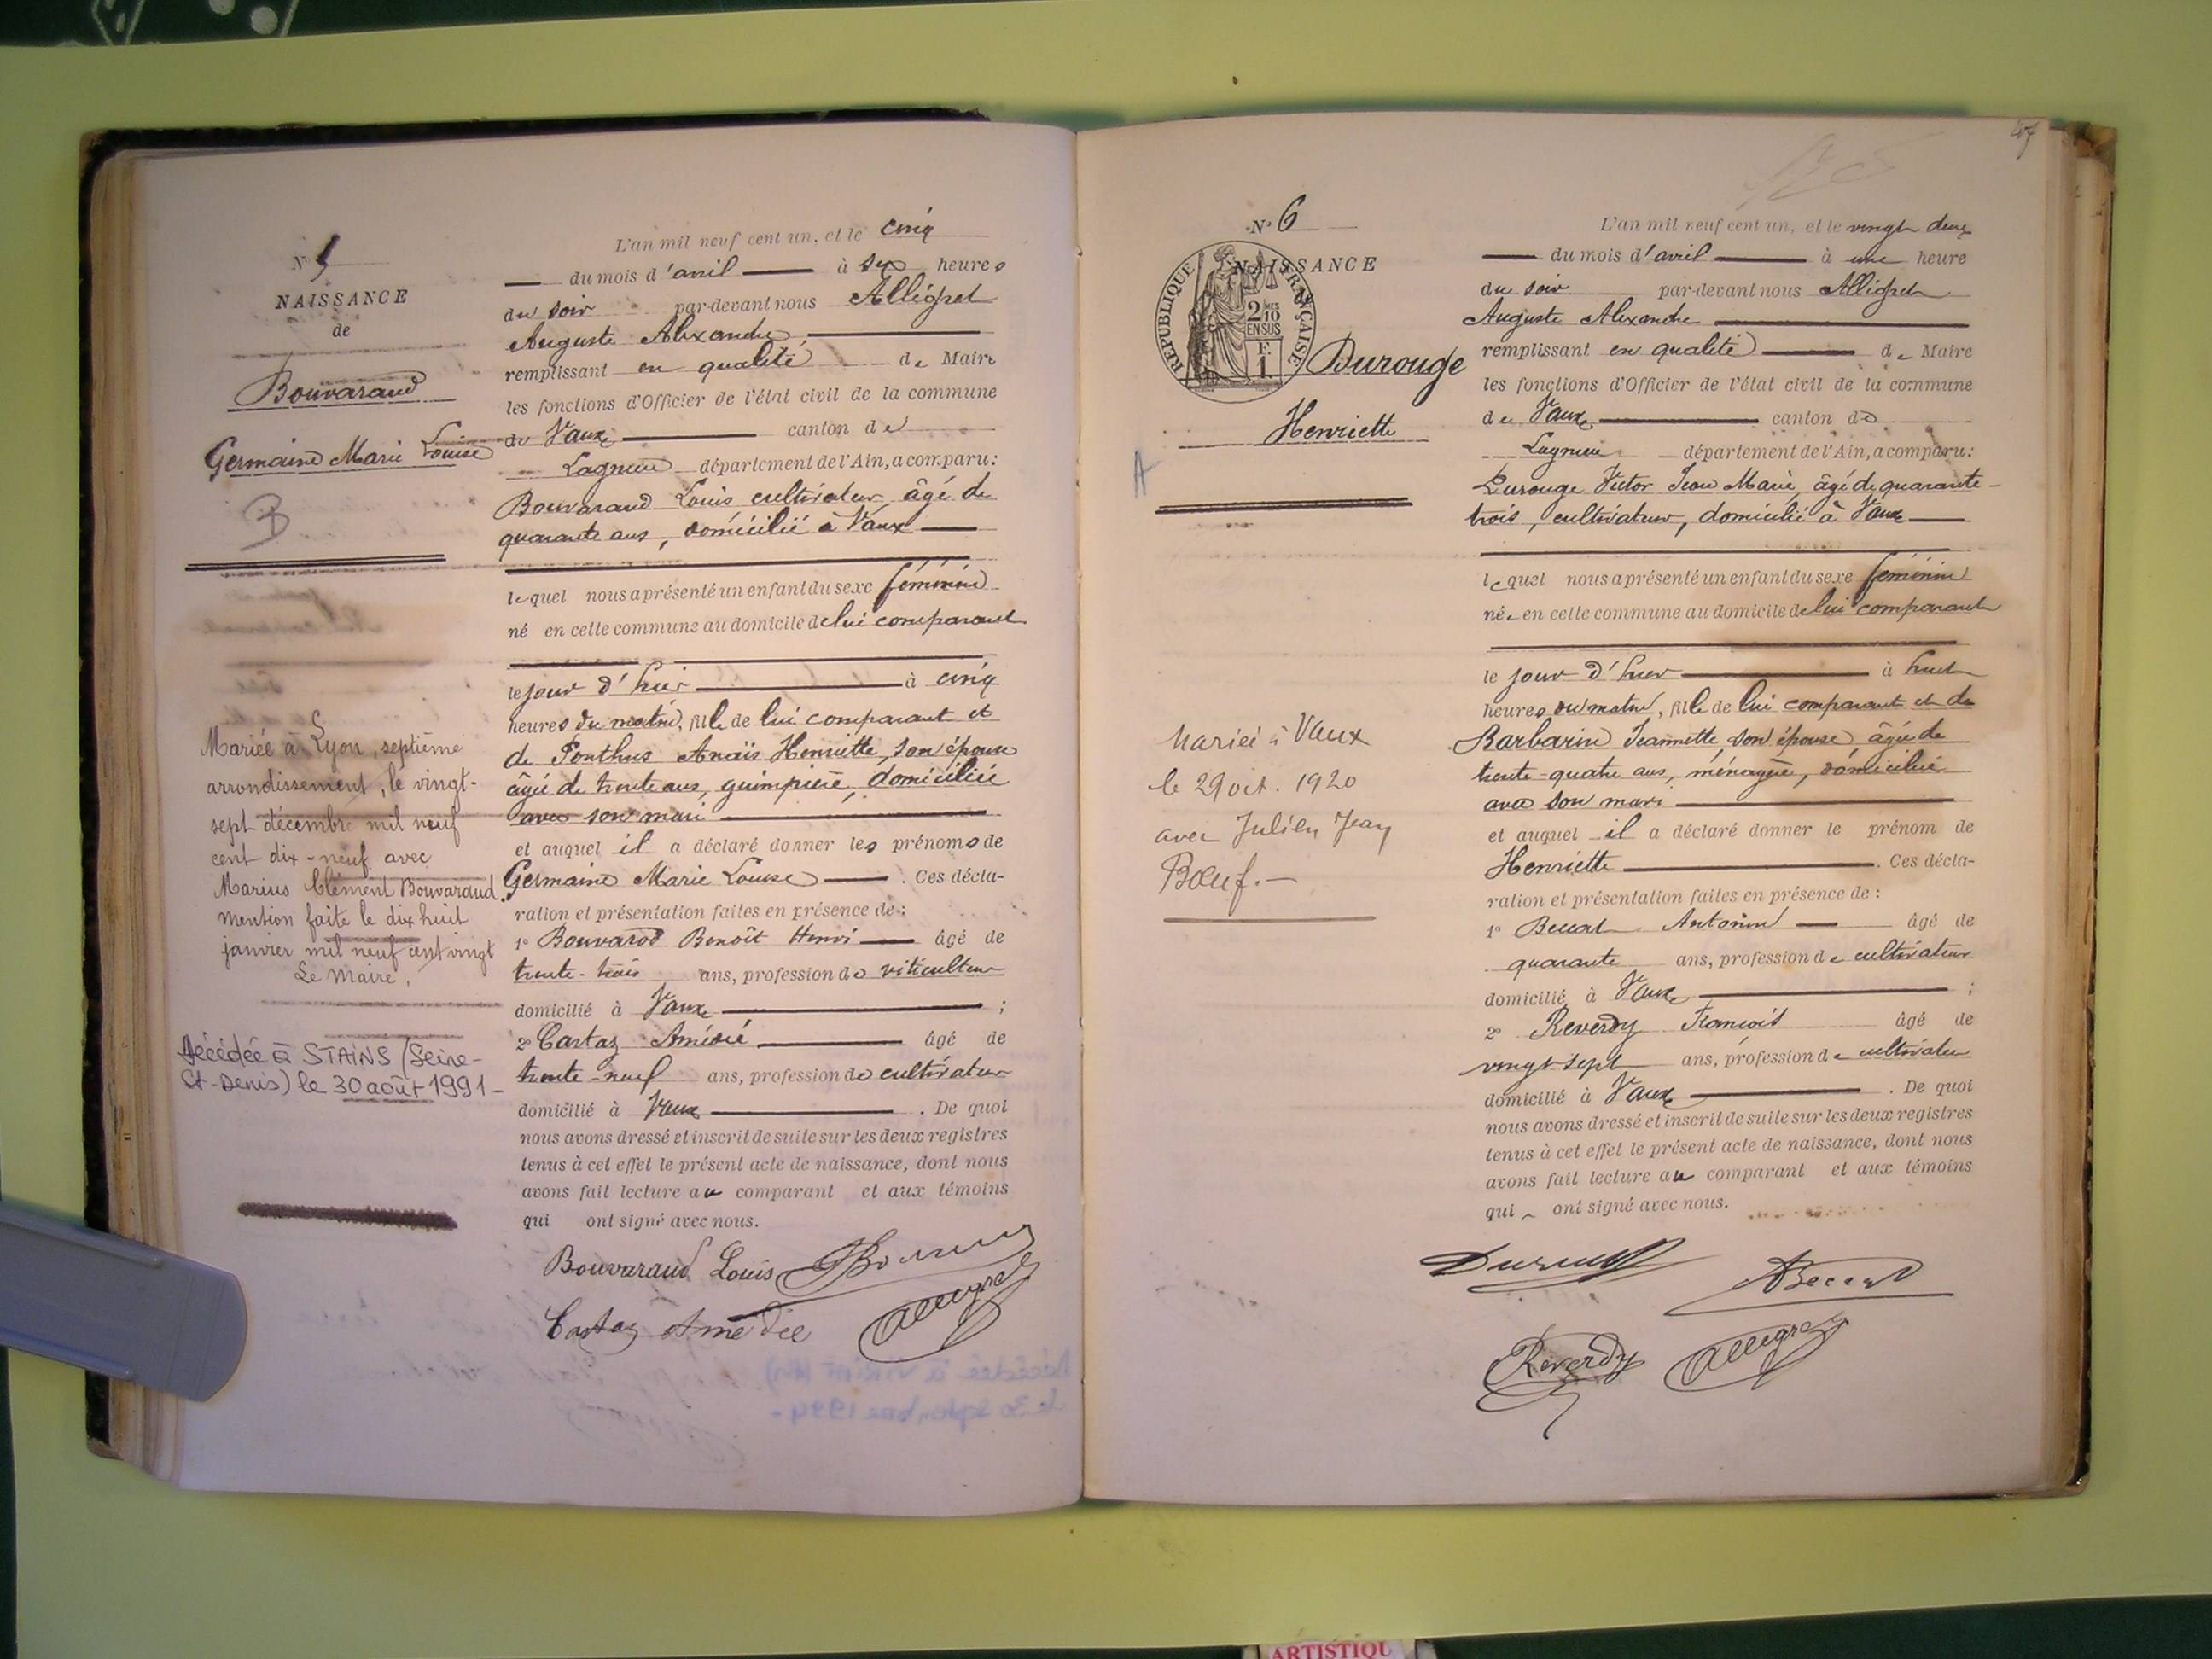 N° 5
NAISSANCE
de
Bouvaraud
Germaine Marie Louise
B
Mariée à Lyon, septième
arrondissement, le vingt-
sept décembre mil neuf
cent dix-neuf avec
Marius Clément Bouvaraud.
Mention faite le dix huit
janvier mil neuf cent vingt
Le Maire,
Décédée à STAINS (Seine-
St-Denis) le 30 août 1991-
L'an mil neuf cent un, et le cinq
du mois d'avril à six heures
du soir par-devant nous Allégret
Auguste Alexandre
remplissant en qualité de Maire
les fonctions d'Officier de l'état civil de la commune
de Vaux canton de
Lagnieu département de l'Ain, a comparu:
Bouvaraud Louis cultivateur, âgé de
quarante ans, domicilié à Vaux
lequel nous a présenté un enfant du sexe féminin
né en cette commune au domicile de lui comparant
le jour d'hier à cinq
heures du matin, fille de lui comparant et
de Ponthus Anaïs Henriette, son épouse
âgée de trente ans, guimpière, domiciliée
avec son mari
et auquel il a déclaré donner les prénoms de
Germaine Marie Louise . Ces décla-
ration et présentation faites en présence de:
1° Bouvarod Benoît Henri âgé de
trente-trois ans, profession de viticulteur
domicilié à Vaux ;
2° Cartaz Amédée âgé de
trente-neuf ans, profession de cultivateur
domicilié à Vaux . De quoi
nous avons dressé et inscrit de suite sur les deux registres
tenus à cet effet le présent acte de naissance, dont nous
avons fait lecture au comparant et aux témoins
qui ont signé avec nous.
Bouvaraud Louis
Cartaz Amédée Allegret
Décédée à (Ain)
le 30 septembre 1994-
47
N° 6
NAISSANCE
REPUBLIQUE FRANÇAISE
2/10 EN SUS
F. 1
Durouge
Henriette
A
Mariée à Vaux
le 29 oct. 1920
avec Julien Jean
Bœuf.-
L'an mil neuf cent un, et le vingt deux
du mois d'avril à une heure
du soir par-devant nous Allégret
Auguste Alexandre
remplissant en qualité de Maire
les fonctions d'Officier de l'état civil de la commune
de Vaux canton de
Lagnieu département de l'Ain, a comparu:
Durouge Victor Jean Marie, âgé de quarante-
trois, cultivateur, domicilié à Vaux
lequel nous a présenté un enfant du sexe féminin
née en cette commune au domicile de lui comparant
le jour d'hier à huit
heures du matin, fille de lui comparant et de
Barbarin Jeannette, son épouse, âgée de
trente-quatre ans, ménagère, domiciliée
avec son mari
et auquel il a déclaré donner le prénom de
Henriette . Ces décla-
ration et présentation faites en présence de:
1° Beccat Antonin âgé de
quarante ans, profession de cultivateur
domicilié à Vaux ;
2° Reverdy François âgé de
vingt-sept ans, profession de cultivateur
domicilié à Vaux . De quoi
nous avons dressé et inscrit de suite sur les deux registres
tenus à cet effet le présent acte de naissance, dont nous
avons fait lecture au comparant et aux témoins
qui ont signé avec nous.
ABeccat
Reverdy Allegret
ARTISTIQU